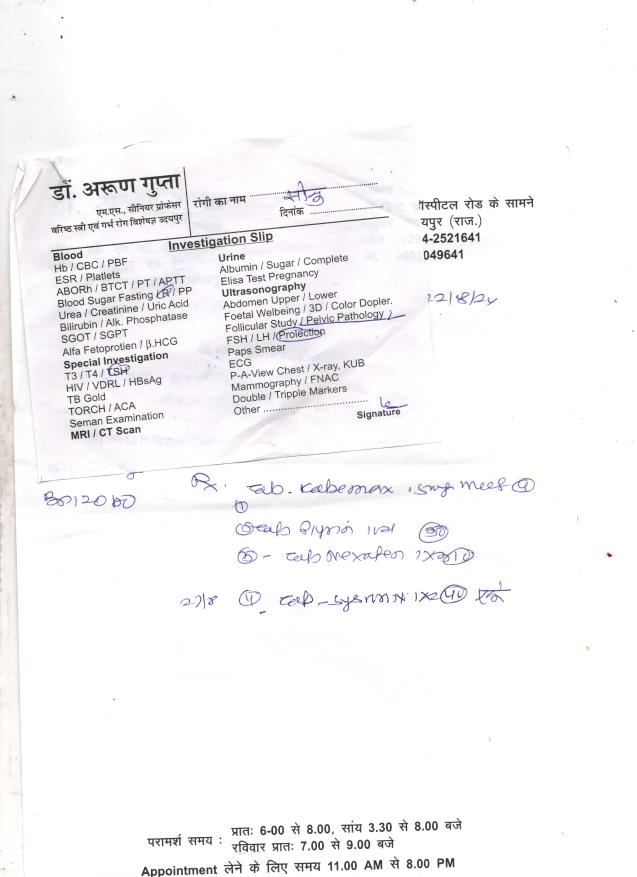 डॉ. अरूण गुप्ता
एम.एस., सीनियर प्रोफेसर
वरिष्ठ स्त्री एवं गर्भ रोग विशेषज्ञ उदयपुर
रोगी का नाम
दिनांक
Investigation Slip
Blood
Hb / CBC / PBF
ESR / Platlets
ABORh / BTCT / PT / APTT
Blood Sugar Fasting / R / PP
Urea / Creatinine / Uric Acid
Bilirubin / Alk. Phosphatase
SGOT / SGPT
Alfa Fetoprotien / β.HCG
Special Investigation
T3 / T4 / TSH
HIV / VDRL / HBsAg
TB Gold
TORCH / ACA
Seman Examination
MRI / CT Scan
Urine
Albumin / Sugar / Complete
Elisa Test Pregnancy
Ultrasonography
Abdomen Upper / Lower
Foetal Welbeing / 3D / Color Dopler.
Follicular Study / Pelvic Pathology
FSH / LH / Prolection
Paps Smear
ECG
P-A-View Chest / X-ray, KUB
Mammography / FNAC
Double / Tripple Markers
Other
Signature
ॉस्पीटल रोड के सामने
यपुर (राज.)
4-2521641
049641
22/8/24
Rx.
Tab.
27/8
परामर्श समय : प्रातः 6-00 से 8.00, सांय 3.30 से 8.00 बजे
रविवार प्रातः 7.00 से 9.00 बजे
Appointment लेने के लिए समय 11.00 AM से 8.00 PM